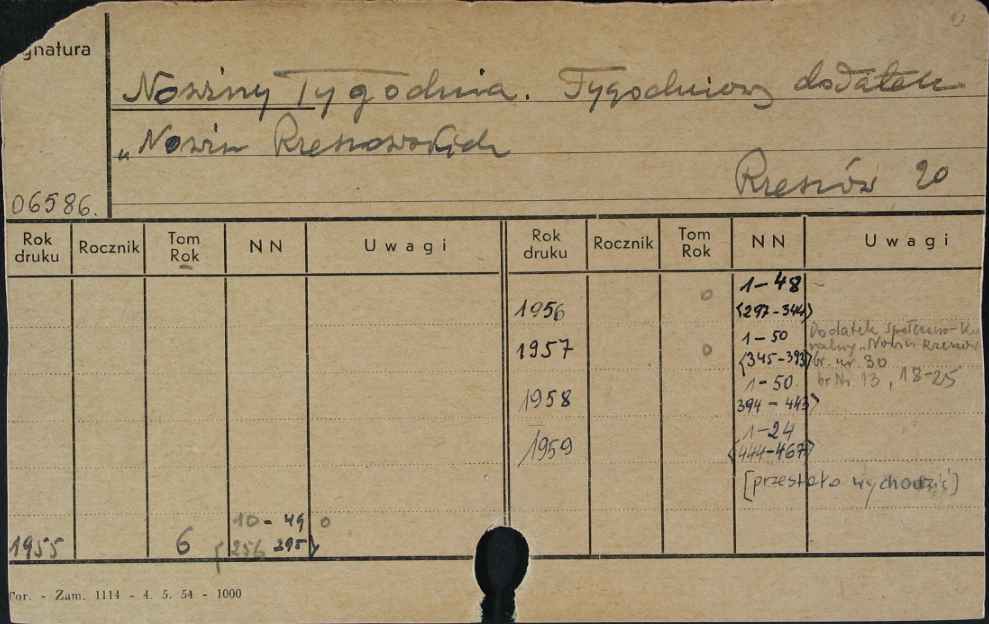 gnatura
Nowiny Tygodnia. Tygodniowy dodatek
„Nowin Rzeszowskich
Rzeszów 20
06586.
Rok druku Rocznik Tom Rok NN Uwagi Rok druku Rocznik Tom Rok NN Uwagi
1-48
1956 0 <297-344>
1-50 Dodatek społeczno-Ku
1957 0 <345-393> ralny „Nowin Rzeszow
br. nr. 30
1-50 br Nr. 13, 18-25
1958 394-443>
1-24
1959 <444-467>
[przestało wychodzić]
10-49 0
1955 6 <256 295>
For. - Zam. 1114 - 4. 5. 54 - 1000